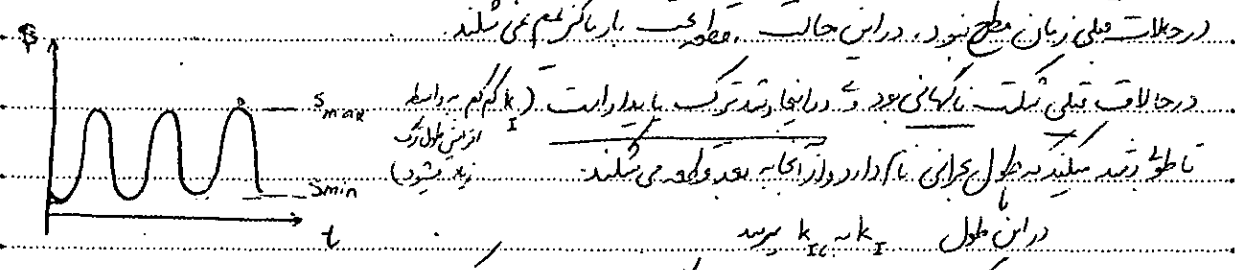 در حالات قبلی زمان مطرح نبود. در این حالت، قطعه تحت بار ماکزیمم نمی شکند.
در حالات قبلی شکست ناگهانی بود و در اینجا رشد ترک پایدار است (k_I کم کم به واسطه افزایش طول ترک زیاد میشود)
تا طولی رشد میکند که طول بحرانی نام دارد و از آنجا به بعد قطعه می شکند
در این طول k_I به k_Ic میرسد
S
S_max
S_min
t